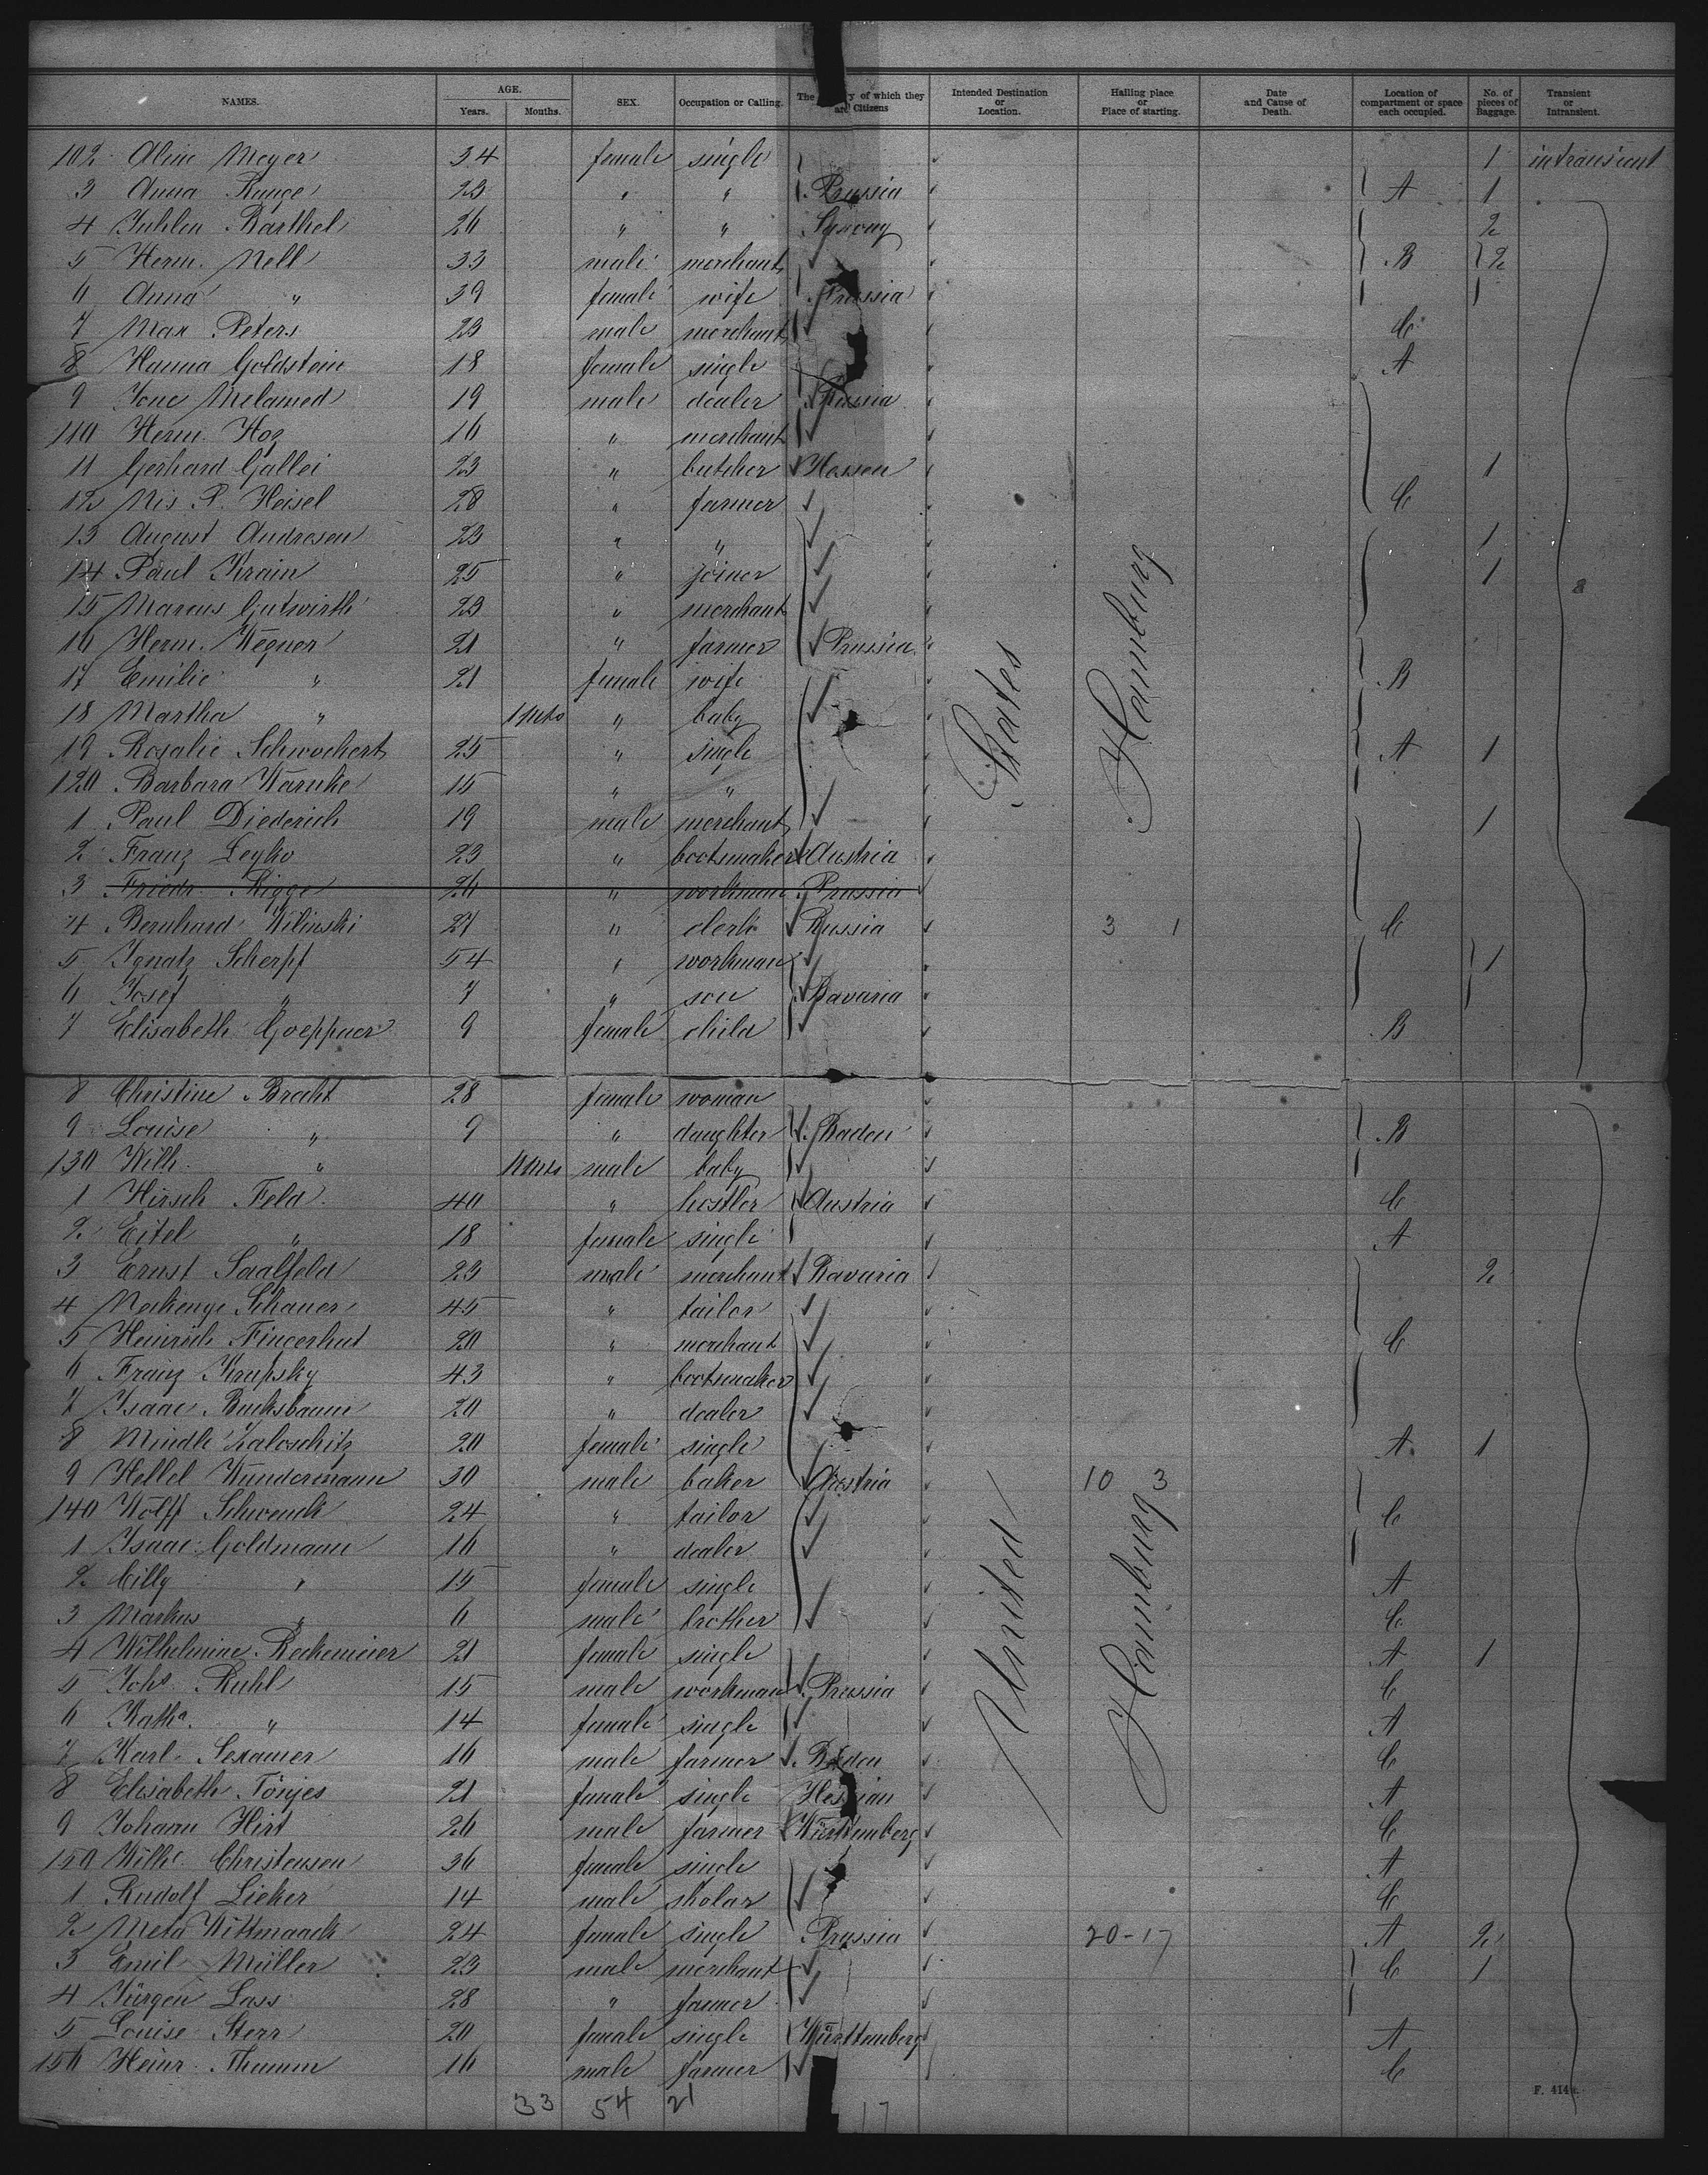 NAMES. AGE. Years. Months. SEX. Occupation or Calling. The of which they are Citizens Intended Destination or Location. Hailing place or Place of starting. Date and Cause of Death. Location of compartment or space each occupied. No. of pieces of Baggage. Transient or Intransient.
102 Aline Meyer 34 female single 1 intransient
3 Anna Runge 23 " " Prussia A 1
4 Barthel 26 " " 2
5 Herm. Nell 33 male merchant B 2
6 Anna " 39 female wife Prussia
7 Max Peters 23 male merchant C
8 Hanna Goldstein 18 female single A
9 Melamed 19 male dealer Russia
110 Herm. Hoz 16 " merchant
11 Gerhard Gallei 23 " butcher Hessen 1
12 Nis P. Heisel 28 " farmer C
13 August Andresen 23 " " 1
14 Paul Krain 25 " joiner 1
15 Marcus Gutwirth 23 " merchant
16 Herm. Wegner 21 " farmer Prussia
17 Emilie " 21 female wife B
18 Martha " " baby
19 Rosalie Schwochert 25 " single A 1
120 Barbara Warnke 15 " "
1 Paul Diederich 19 male merchant 1
2 Franz Leyko 23 " bootsmaker Austria
3 Friedr. Rigge 26 " workman Prussia
4 Bernhard Wilinski 27 " clerk Russia 3 1 C
5 Ignatz Scherpf 54 " workman 1
6 Josef " 7 " son Bavaria
7 Elisabeth Goeppner 9 female child B
8 Christine Bracht 28 female woman
9 Louise " 9 " daughter Baden B
130 Wilh. " male baby
1 Hirsch Feld 40 " hostler Austria C
2 Eitel " 18 female single A
3 Ernst Saalfeld 23 male merchant Bavaria 2
4 Schauer 45 " tailor
5 Heinrich Fingerhut 20 " merchant C
6 Franz Krupsky 43 " bootsmaker
7 Isaac Buchsbaum 20 " dealer
8 Mindle Zaloschitz 20 female single A 1
9 Hellel Wundermann 30 male baker Austria 10 3
140 Wolff Schwenck 24 " tailor C
1 Isaac Goldmann 16 " dealer
2 Cilly " 15 female single A
3 Markus " 6 male brother C
4 Wilhelmine Reckemeier 21 female single A 1
5 Johs. Ruhl 15 male workman Prussia C
6 Katha. " 14 female single A
7 Karl Sexauer 16 male farmer Baden C
8 Elisabeth Tönjes 21 female single Hessian A
9 Johann Hirt 26 male farmer Württemberg C
150 Wilhe. Christensen 36 female single A
1 Rudolf Lieker 14 male skolar C
2 Meta Wittmaack 24 female single Prussia 20-17 A 2
3 Emil Müller 23 male merchant C 1
4 Jürgen Lass 28 " farmer
5 Louise Sterr 20 female single Württemberg A
156 Heinr. Thumm 16 male farmer C
33 54 21 17
United States
Hamburg
Hamburg
F. 414